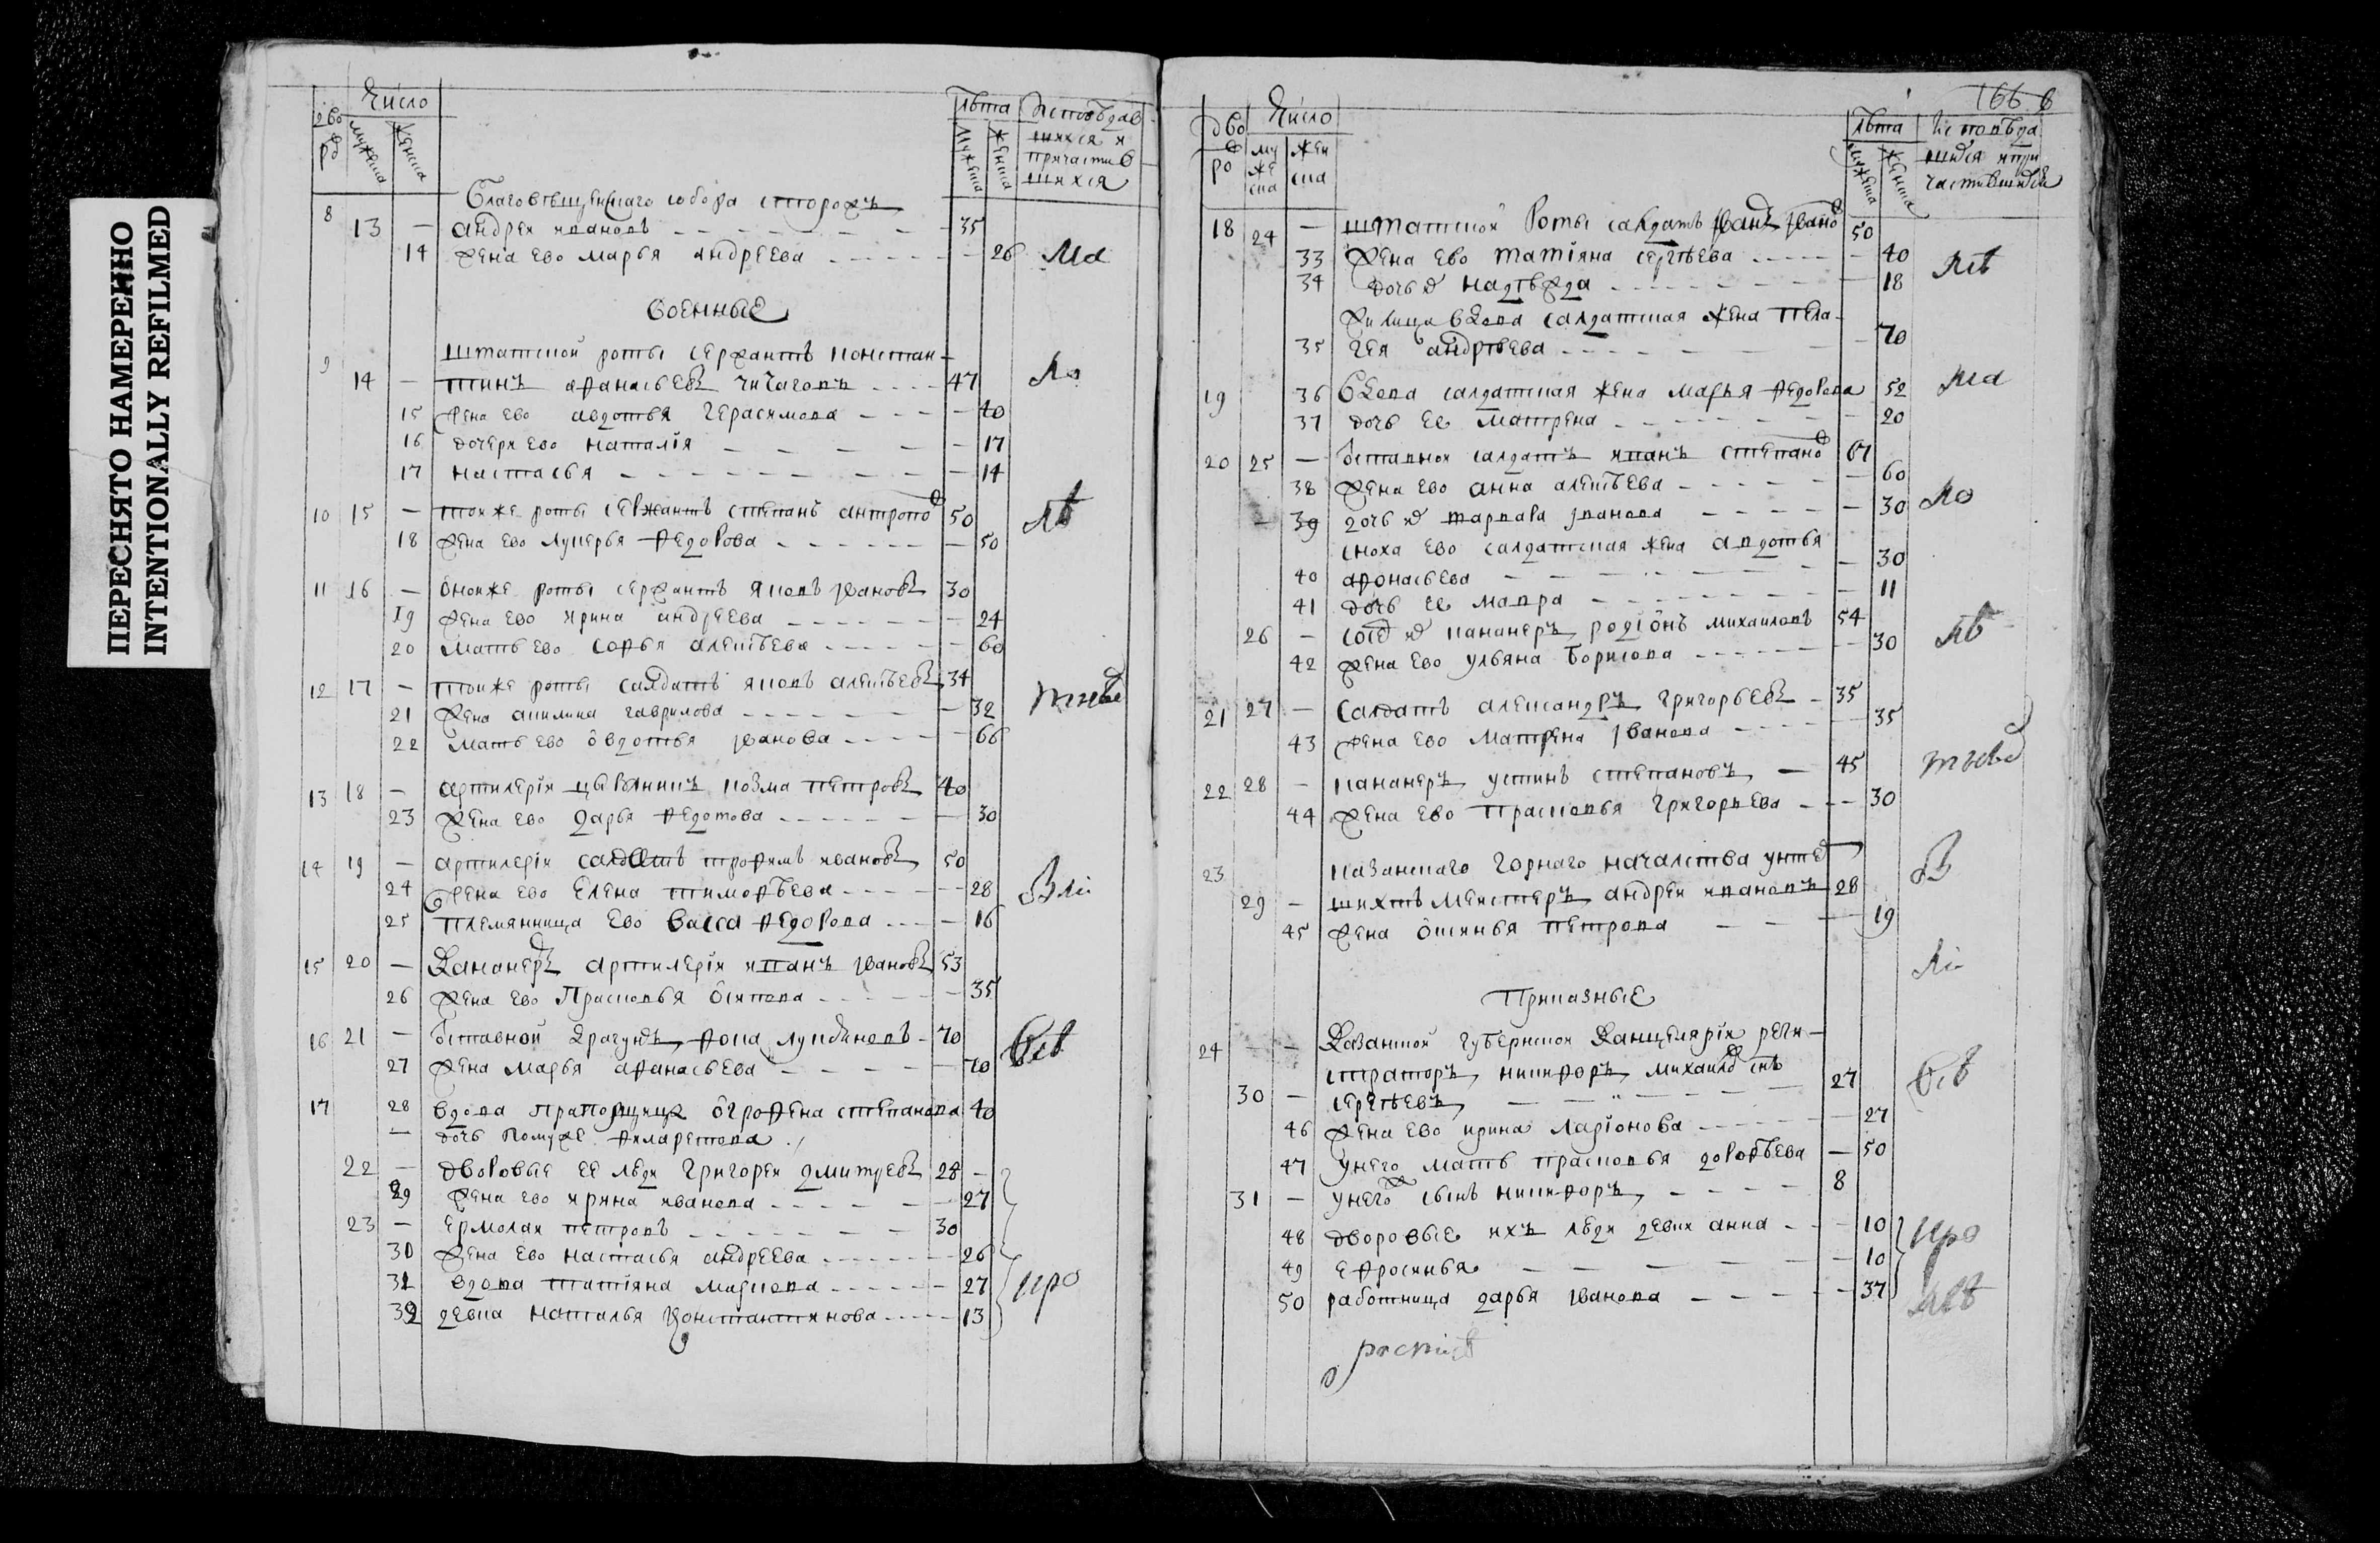 ПЕРЕСНЯТО НАМЕРЕННО
INTENTIONALLY REFILMED
Число
лѣта Исповѣдав
шихся и
причастив
шихся
Благовѣщенскаго собора сторожъ
8 13 — андреи ивановъ 35
14 жена ево марья андреева 26
военные
штатской роты сержантъ констан
9 14 — тинъ афанасьевъ чичаговъ 47
15 жена ево авдотья герасимова 40
16 дочери ево наталiя 17
17 настасья 14
10 15 — тои же роты сержантъ степанъ антропо 50
18 жена ево лукерья федорова 50
11 16 — онои же роты сержантъ яковъ ивановъ 30
19 жена ево ирина андреева 24
20 мать ево софья алексѣева 60
12 17 — тои же роты салдатъ яковъ алексѣевъ 34
21 жена акилина гаврилова 32
22 мать ево овдотья иванова 66
13 18 — артилерiи козма петровъ 40
23 жена ево дарья федотова 30
14 19 — артилерiи салдатъ трофимъ ивановъ 50
24 жена ево елена тимофѣева 28
25 племянница ево васса федорова 16
15 20 — кананеръ артилерiи иванъ ивановъ 53
26 жена ево Прасковья осипова 35
16 21 — драгунъ фока 70
27 жена марья афанасьева 70
17 28 вдова прапорщица огрофена степанова 40
— дочь филаретова
22 — дворовые ее люди григореи дмитревъ 28
29 жена ево ирина иванова 27
23 — ермолаи петровъ 30
30 жена ево настасья андреева 26
31 вдова татiяна маркова 27
32 девка наталья константинова 13
166
Число
лѣта Исповѣда
18 24 — штатской роты салдатъ иванъ ивано 50
33 жена ево татiяна сергѣева 40
34 дочь надѣжда 18
вдова салдатская жена пела
35 гея андрѣева 70
19 36 вдова салдатская жена марья федорова 52
37 дочь ее матрена 20
20 25 — салдатъ иванъ степано 61
38 жена ево анна алексѣева 60
39 дочь варвара иванова 30
сноха ево салдатская жена авдотья
40 афонасьева 30
41 дочь ее мавра 11
26 — кананеръ родiонъ михаиловъ 54
42 жена ево ульяна борисова 30
21 27 — салдатъ александръ григорьевъ 35
43 жена ево матрена иванова 35
22 28 — кананеръ устинъ степановъ 45
44 жена ево прасковья григорьева 30
23 казанскаго горнаго началства унте
29 — шихтъ меистеръ андреи ивановъ 28
45 жена петрова 19
Приказные
24 — — казанской губернской канцелярiи реги
страторъ никифоръ михаило снъ
30 — сергѣевъ 27
46 жена ево ирина ларiонова 27
47 у него мать прасковья дорофѣева 50
31 — у него сынъ никифоръ 8
48 дворовые ихъ люди девки анна 10
49 ефросинья 10
50 работница дарья иванова 37